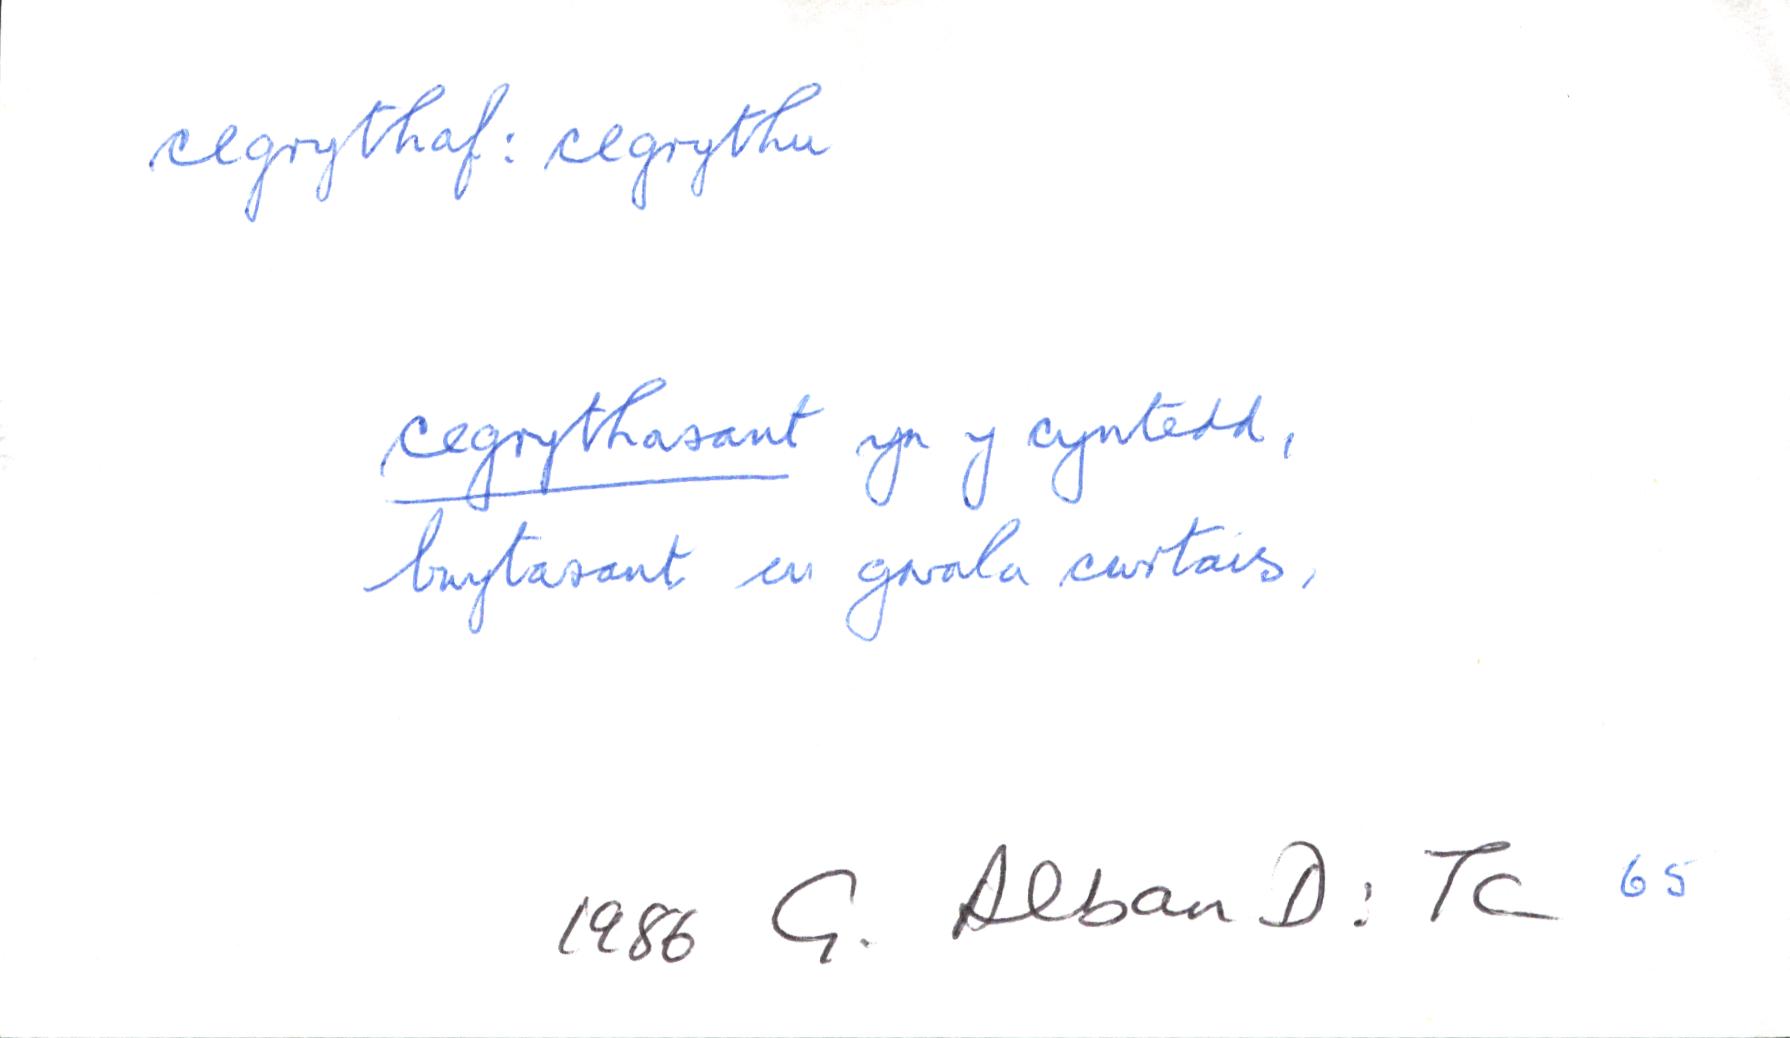 cegrythaf: cegrythu
cegrythasant yn y cyntedd,
bwytasant eu gwala cwrtais,
1986 G. Alban D: TC 65